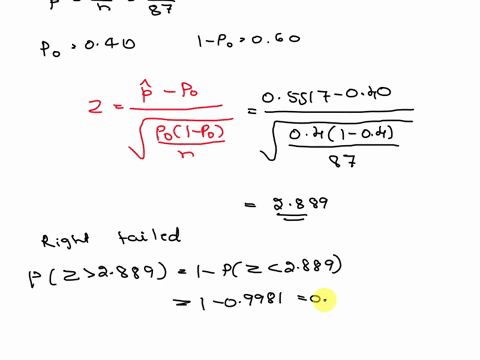 n 87
P₀ = 0.40 1-P₀ = 0.60
Z = (p̂ - P₀) / √(P₀(1-P₀)/n) = (0.5517-0.40) / √(0.4(1-0.4)/87)
= 2.889
Right tailed
P(Z>2.889) = 1-P(Z<2.889)
= 1-0.9981 = 0.